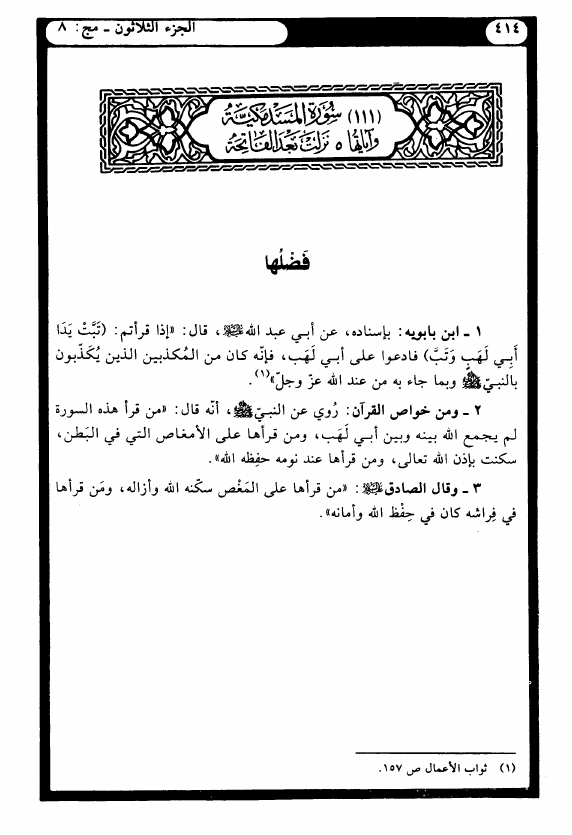 ٤١٤
الجزء الثلاثون ـ مج: ٨
(١١١) سُورَة المَسَد مَكيَّة
وَآيَاتُهَا ٥ نَزلَتْ بَعْدَ الفَاتِحَة
فَضْلُها
١ ـ ابن بابويه: بإسناده، عن أبي عبد الله عليه السلام، قال: «إذا قرأتم: (تَبَّتْ يَدَا
أَبِي لَهَبٍ وَتَبَّ) فادعوا على أبي لَهَب، فإنّه كان من المُكذبين الذين يُكَذّبون
بالنبيّ ﷺ وبما جاء به من عند الله عزّ وجلّ»(١).
٢ ـ ومن خواص القرآن: رُوي عن النبيّ ﷺ، أنّه قال: «من قرأ هذه السورة
لم يجمع الله بينه وبين أبي لَهَب، ومن قرأها على الأمغاص التي في البَطن،
سكنت بإذن الله تعالى، ومن قرأها عند نومه حفِظه الله».
٣ ـ وقال الصادق عليه السلام: «من قرأها على المَغْص سكّنه الله وأزاله، ومَن قرأها
في فِراشه كان في حِفْظ الله وأمانه».
(١) ثواب الأعمال ص ١٥٧.